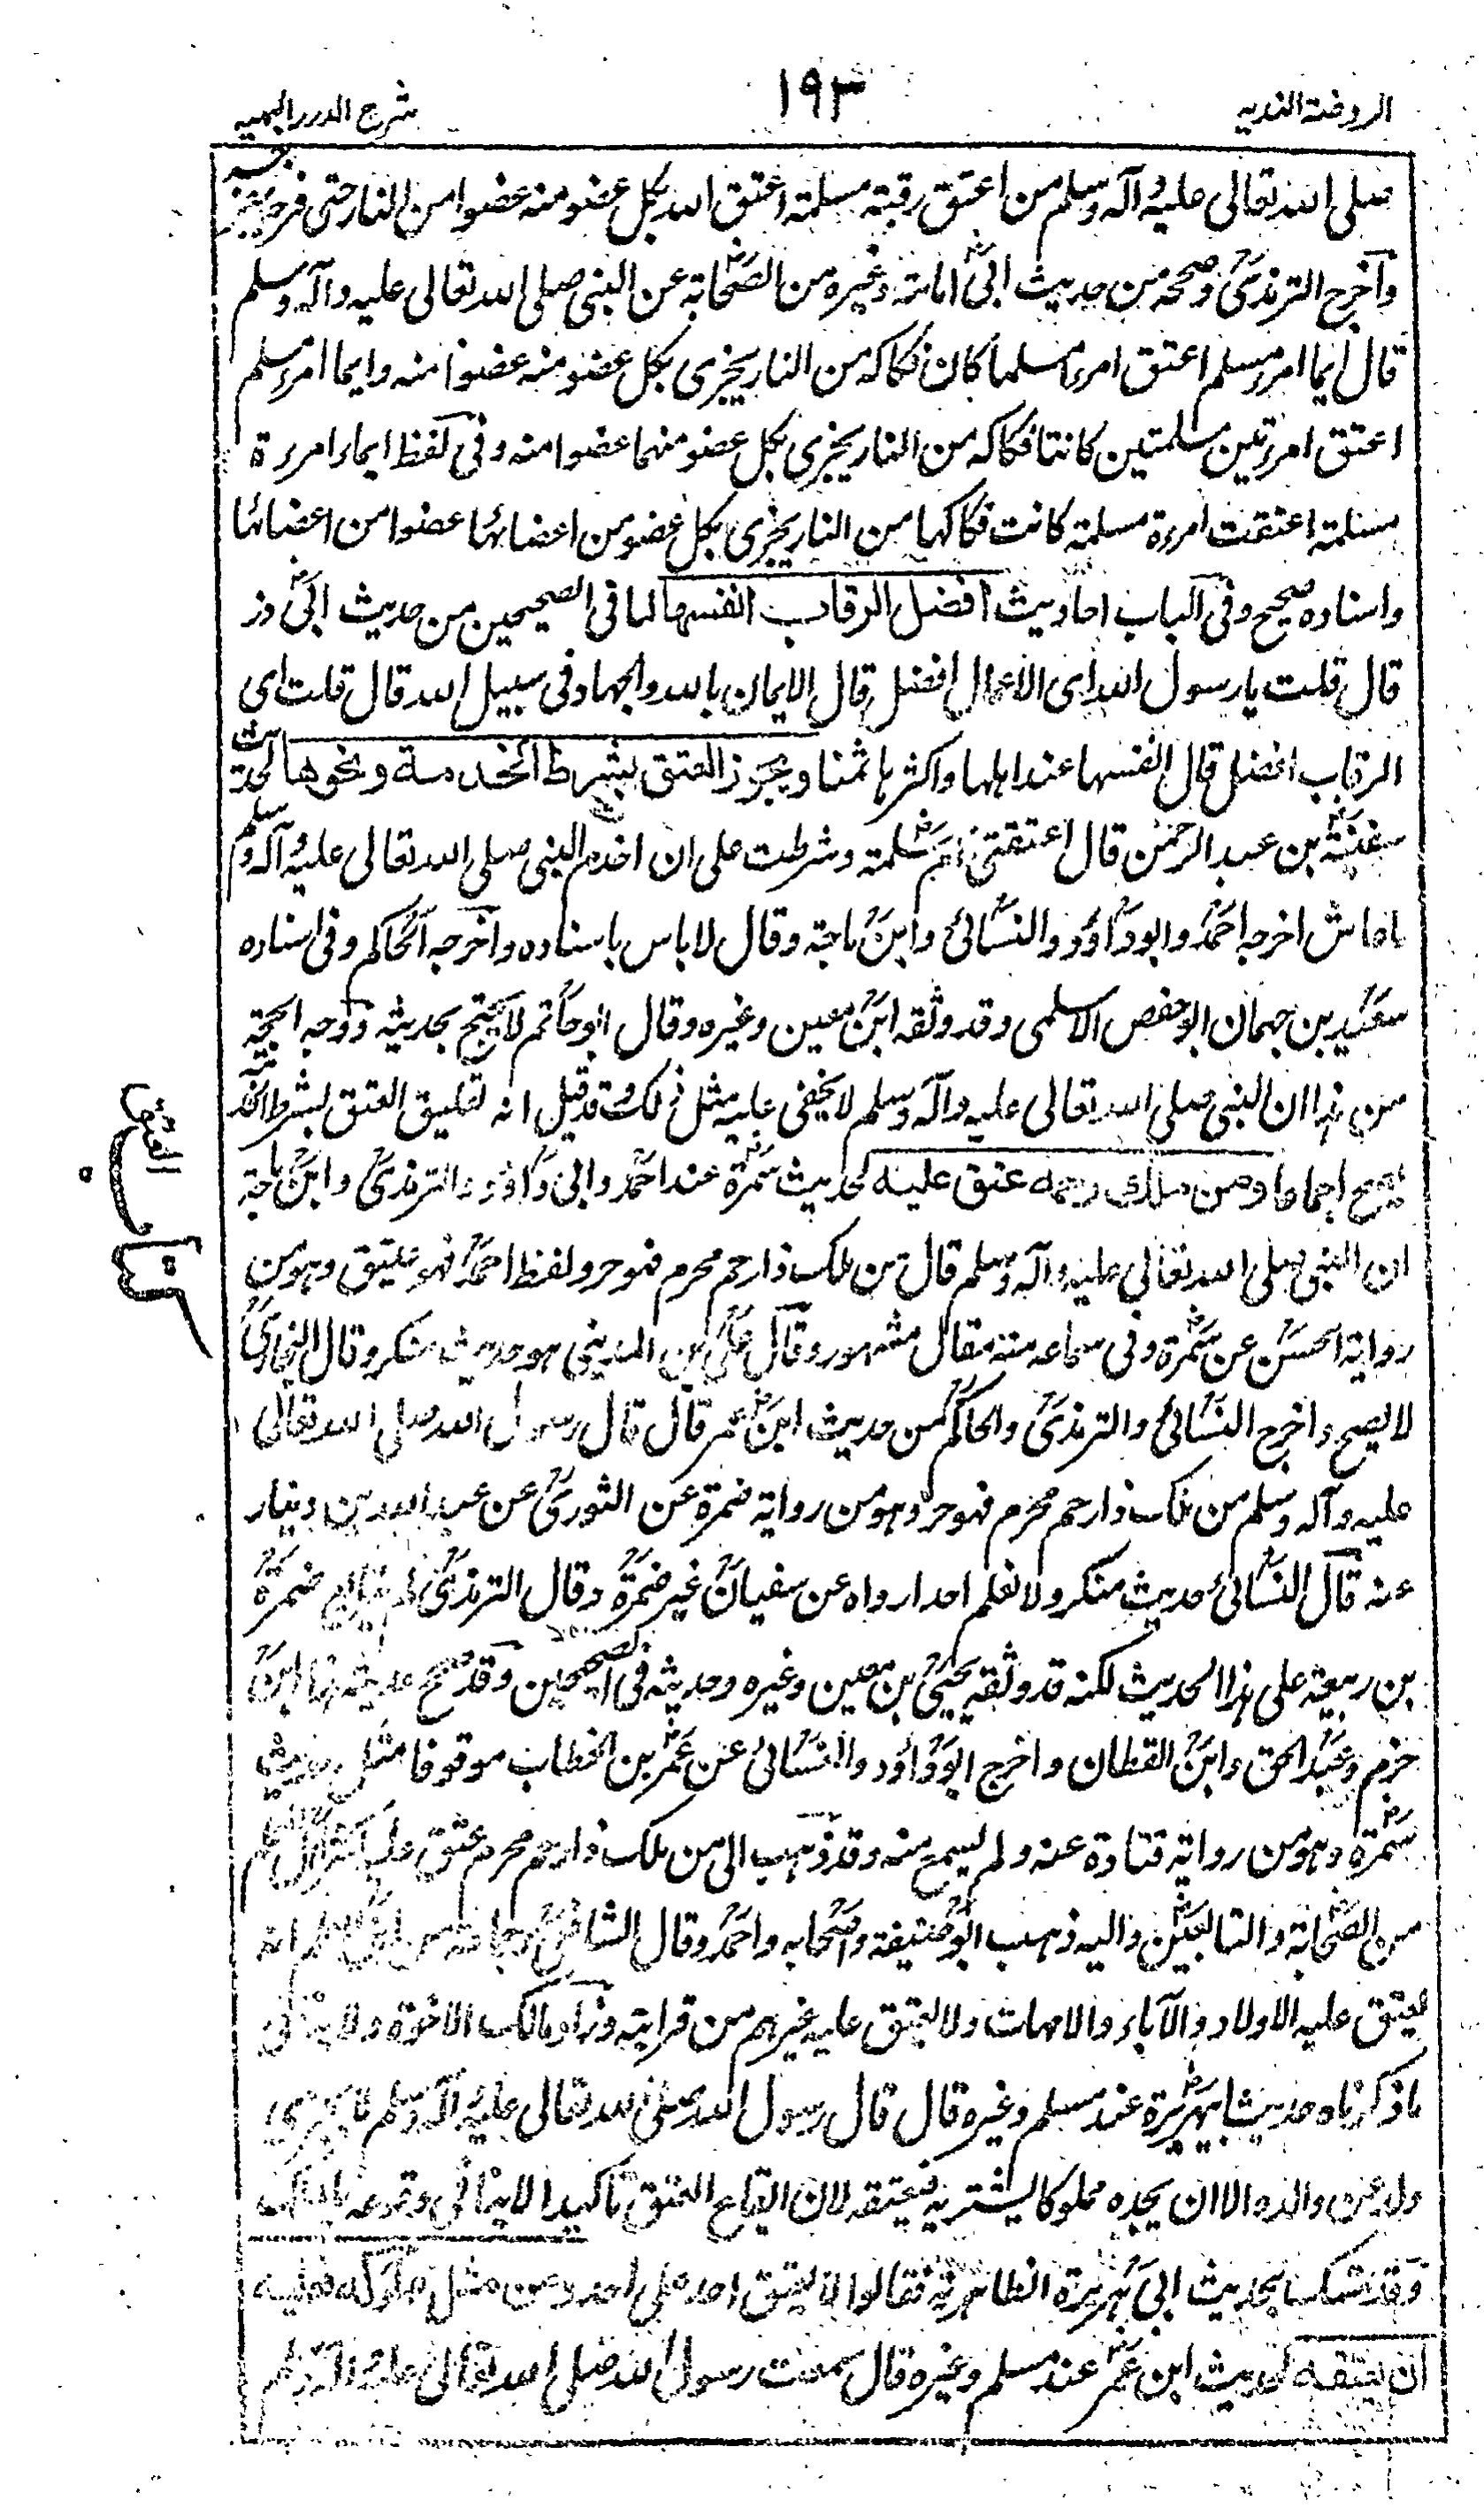 الروضة الندیه
۱۹۳
شرح الدرر البهیه
صلی الله تعالی علیه وآله وسلم من اعتق رقبة مسلمة اعتق الله بکل عضو منه عضوا من النار حتی فرجه بفرجه
وآخرج الترمذی وصححه من حدیث ابی امامة وغیره من الصحابة عن النبی صلی الله تعالی علیه وآله وسلم
قال ایما امرء مسلم اعتق امرءا مسلما کان فکاکه من النار یجزی بکل عضو منه عضوا منه وایما امرء مسلم
اعتق امرءتین مسلمتین کانتا فکاکه من النار یجزی بکل عضو منهما عضوا منه وفی لفظ ایماء امرءة
مسلمة اعتقت امرءة مسلمة کانت فکاکها من النار یجزی بکل عضو من اعضائها عضوا من اعضائها
واسناده صحیح وفی الباب احادیث افضل الرقاب انفسها لما فی الصحیحین من حدیث ابی ذر
قال قلت یا رسول الله ای الاعمال افضل قال الایمان بالله والجهاد فی سبیل الله قال قلت ای
الرقاب افضل قال انفسها عند اهلها واکثرها ثمنا ویجوز العتق بشرط الخدمة ونحوها لحدیث
سفینة بن عبد الرحمن قال اعتقتنی ام سلمة وشرطت علی ان اخدم النبی صلی الله تعالی علیه وآله وسلم
ما عاش اخرجه احمد وابو داؤد والنسائی وابن ماجة وقال لا باس باسناده وآخرجه الحاکم وفی اسناده
سعید بن جمهان ابو حفص الاسلمی وقد وثقه ابن معین وغیره وقال ابو حاتم لا یحتج بحدیثه ووجه الحجة
من هذا ان النبی صلی الله تعالی علیه وآله وسلم لا یخفی علیه مثل ذلک وقد قیل انه تعلیق العتق بشرط الخدمة
یصح اجماعا ومن ملک رحمه عتق علیه لحدیث سمرة عند احمد وابی داؤد والترمذی وابن ماجة
ان النبی صلی الله تعالی علیه وآله وسلم قال من ملک ذا رحم محرم فهو حر ولفظ احمد فهو عتیق وهو من
روایة الحسن عن سمرة وفی سماعه منه مقال مشهور وقال علی بن المدینی هو حدیث منکر وقال البخاری
لا یصح واخرج النسائی والترمذی والحاکم من حدیث ابن عمر قال قال رسول الله صلی الله تعالی
علیه وآله وسلم من ملک ذا رحم محرم فهو حر وهو من روایة ضمرة عن الثوری عن عبد الله بن دینار
عنه قال النسائی حدیث منکر ولا نعلم احدا رواه عن سفیان غیر ضمرة وقال الترمذی لم یتابع ضمرة
بن ربیعة علی هذا الحدیث لکنه قد وثقه یحیی بن معین وغیره وحدیثه فی الصحیحین وقد صحح حدیثه هذا ابن
حزم وعبد الحق وابن القطان واخرج ابو داؤد والنسائی عن عمر بن الخطاب موقوفا مثل حدیث
سمرة وهو من روایة قتادة عنه ولم یسمع منه وقد ذهب الی من ملک ذا رحم محرم عتق علیه اکثر اهل العلم
من الصحابة والتابعین والیه ذهب ابو حنیفة واصحابه واحمد وقال الشافعی وجماعة من اهل العلم انه
یعتق علیه الاولاد والآباء والامهات ولا یعتق علیه غیرهم من قرابته وزاد مالک الاخوة ولا ینافی
ما ذکرناه حدیث ابی هریرة عند مسلم وغیره قال قال رسول الله صلی الله تعالی علیه وآله وسلم لا یجزی
ولد عن والده الا ان یجده مملوکا لیشتریه فیعتقه لان ایقاع العتق تاکیدا لا ینافی وقوعه بالملک
وقد تمسک بحدیث ابی هریرة الظاهریة فقالوا لا یعتق احد علی احد ومن مثل بمملوکه فعلیه
ان یعتقه لحدیث ابن عمر عند مسلم وغیره قال سمعت رسول الله صلی الله تعالی علیه وآله وسلم